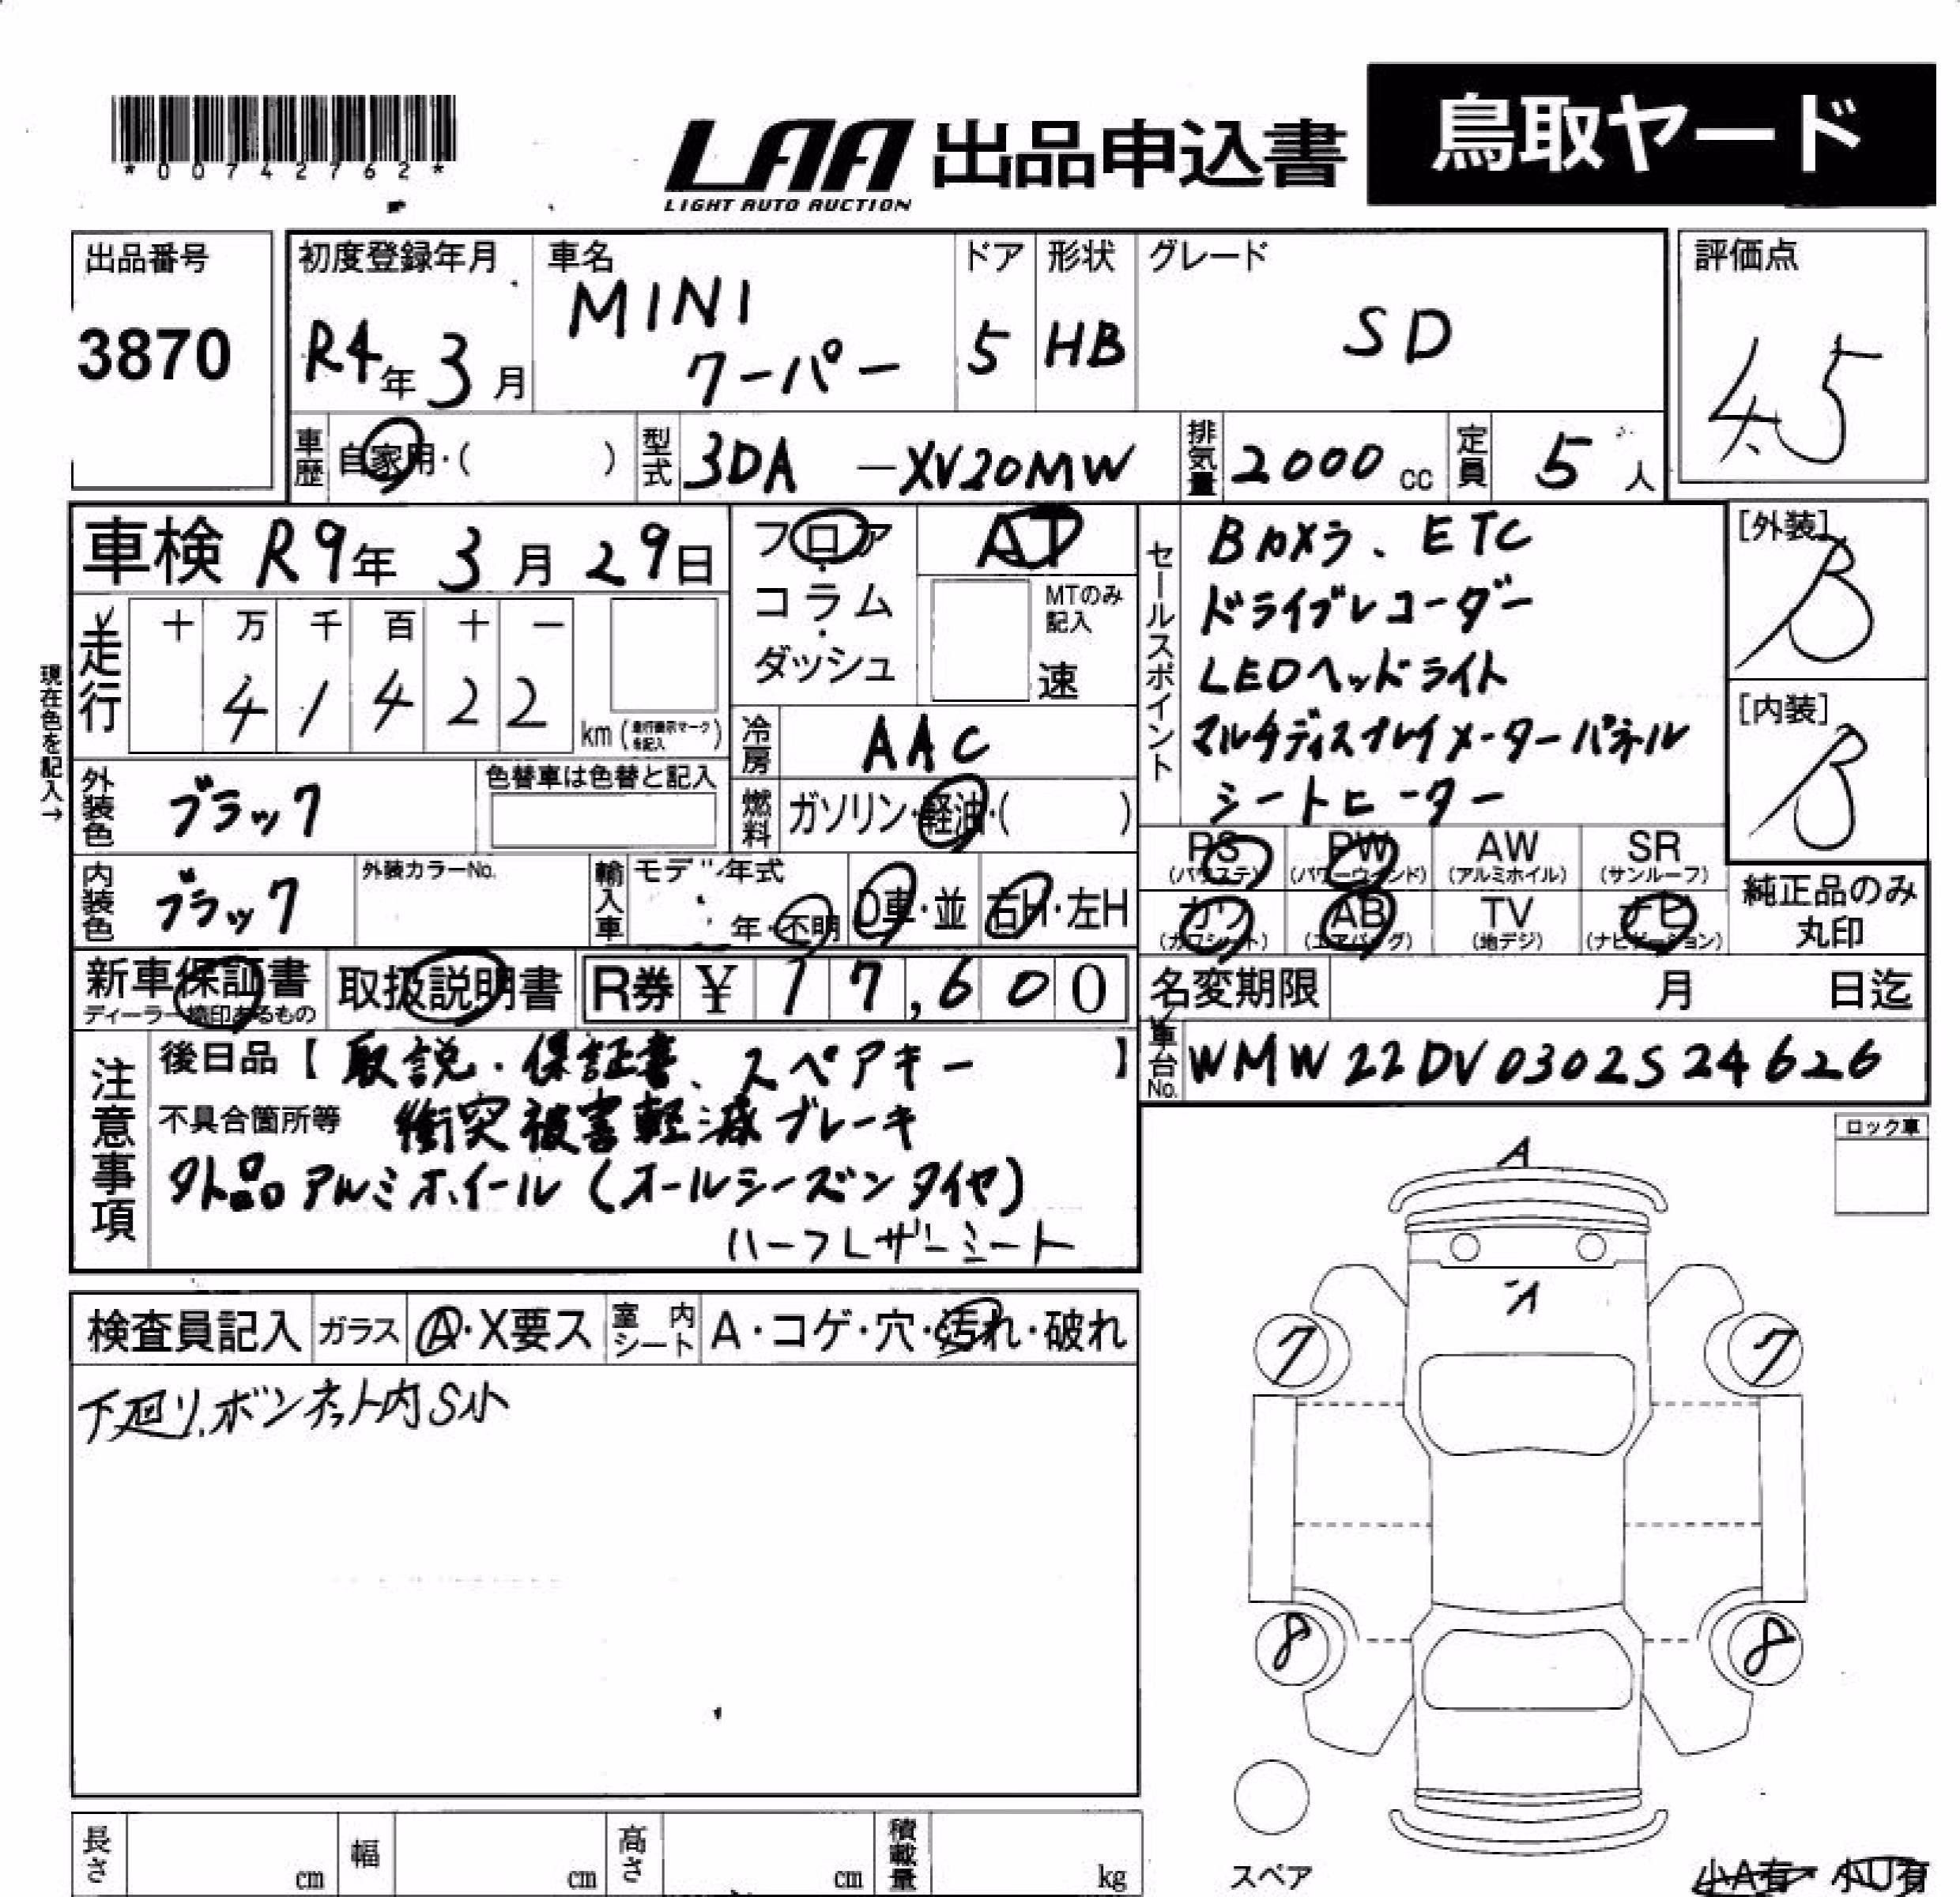 *00742762*
LAA 出品申込書 鳥取ヤード
LIGHT AUTO AUCTION
出品番号
3870
初度登録年月
R4年 3月
車名
MINI
クーパー
ドア
5
形状
HB
グレード
SD
評価点
4.5
車歴 自家用・( )
型式 3DA -XV20MW
排気量 2000 cc
定員 5 人
車検 R9年 3月 29日
フロア
コラム
ダッシュ
AT
MTのみ
記入
速
走行
十 万 千 百 十 一
4 1 4 2 2
km (走行表示マークを記入)
現在色を記入→
冷房 AAC
外装色 ブラック
色替車は色替と記入
燃料 ガソリン・軽油・( )
内装色 ブラック
外装カラーNo.
輸入車 年式
年・不明
D車・並
右H・左H
セールスポイント
Bカメラ、ETC
ドライブレコーダー
LEDヘッドライト
マルチディスプレイメーターパネル
シートヒーター
[外装]
B
[内装]
B
PS (パワステ)
PW (パワーウィンド)
AW (アルミホイル)
SR (サンルーフ)
カワ (カワシート)
AB (エアバッグ)
TV (地デジ)
ナビ (ナビゲーション)
純正品のみ
丸印
新車保証書
ディーラー捺印あるもの
取扱説明書
R券 ¥ 17,600
名変期限 月 日迄
車台No. WMW22DV0302S24626
注意事項
後日品【 取説・保証書、スペアキー 】
不具合箇所等 衝突被害軽減ブレーキ
外品アルミホイール(オールシーズンタイヤ)
ハーフレザーシート
ロック車
検査員記入
ガラス A・X要ス
室内シート A・コゲ・穴・汚れ・破れ
下廻り、ボンネット内S小
A
7 7
8 8
スペア
長さ cm
幅 cm
高さ cm
積載量 kg
小A有 小U有